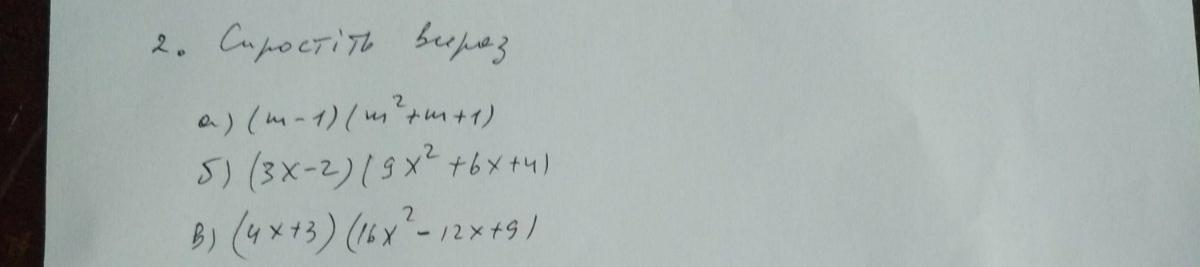 2. Спростіть вираз
а) (m-1)(m²+m+1)
б) (3x-2)(9x²+6x+4)
в) (4x+3)(16x²-12x+9)